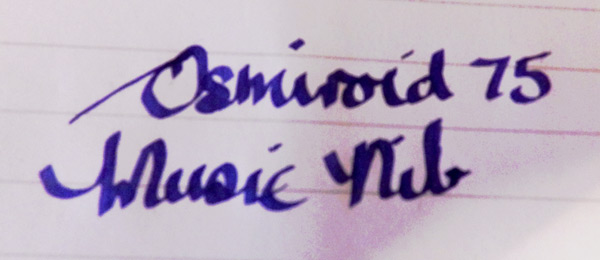 Osmiroid 75
Music Nib